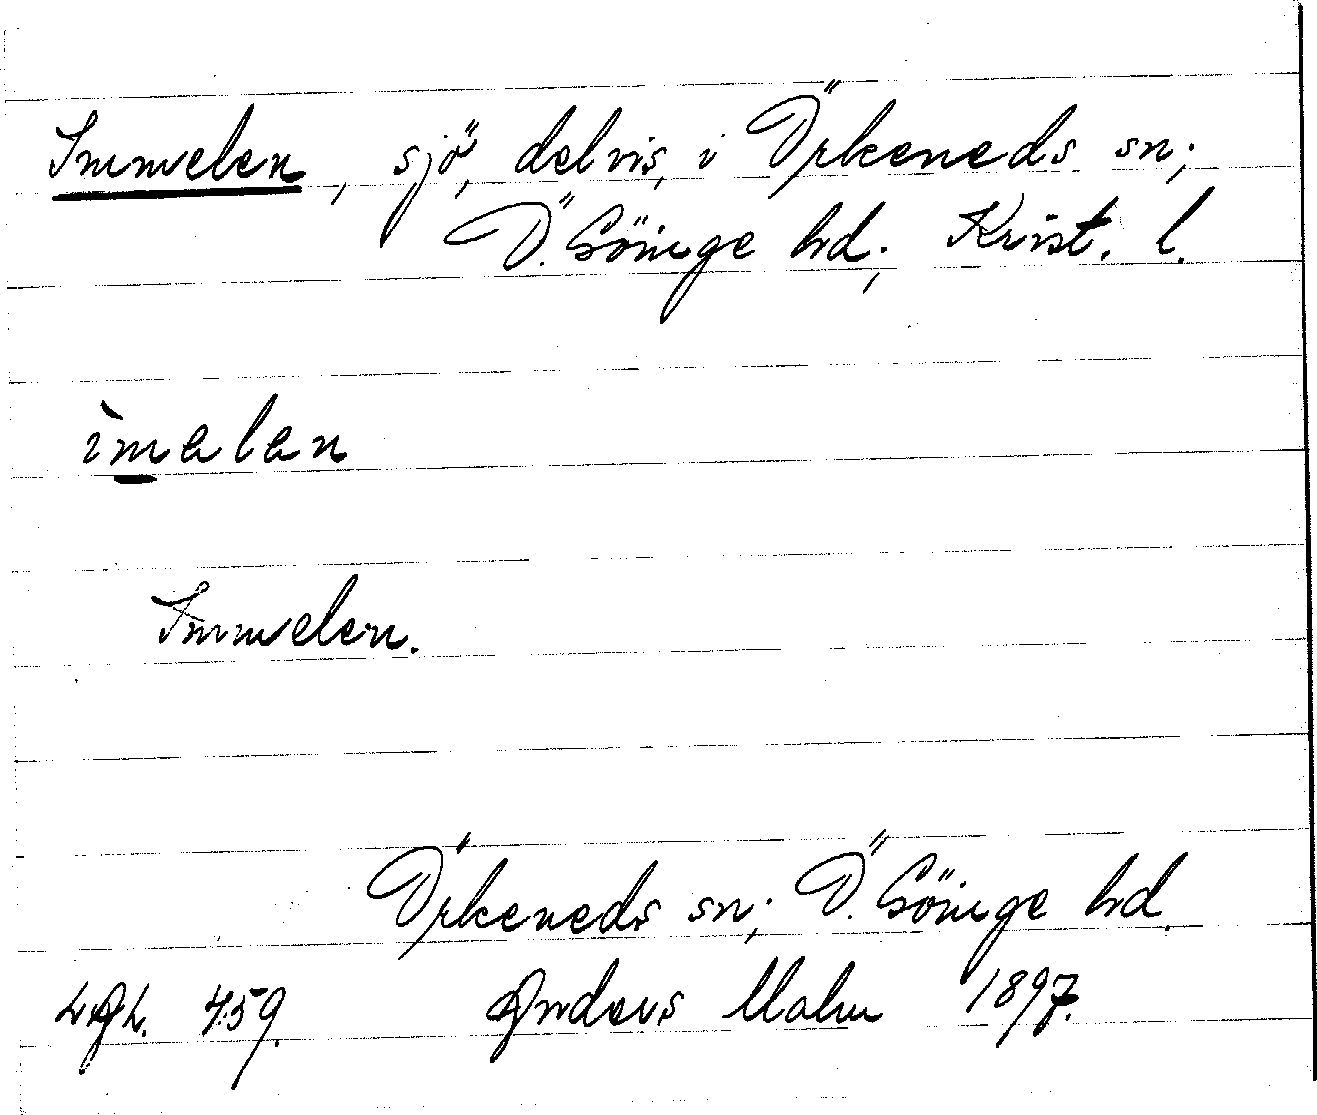 Immelen, sjö, delvis, i Örkeneds sn;
Ö. Göinge hd; Krist. l.
ìmalan
Immelen.
Örkeneds sn; Ö. Göinge hd.
LAL. 459. Anders Malm 1897.